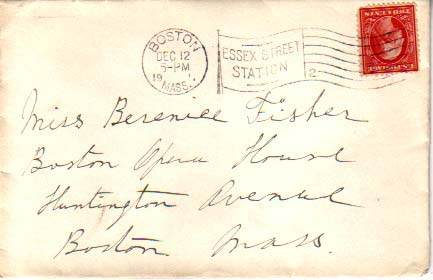 BOSTON
DEC 12
5-PM
19
MASS.
ESSEX STREET
STATION
2
Miss Berenice Fisher
Boston Opera House
Huntington Avenue
Boston Mass.